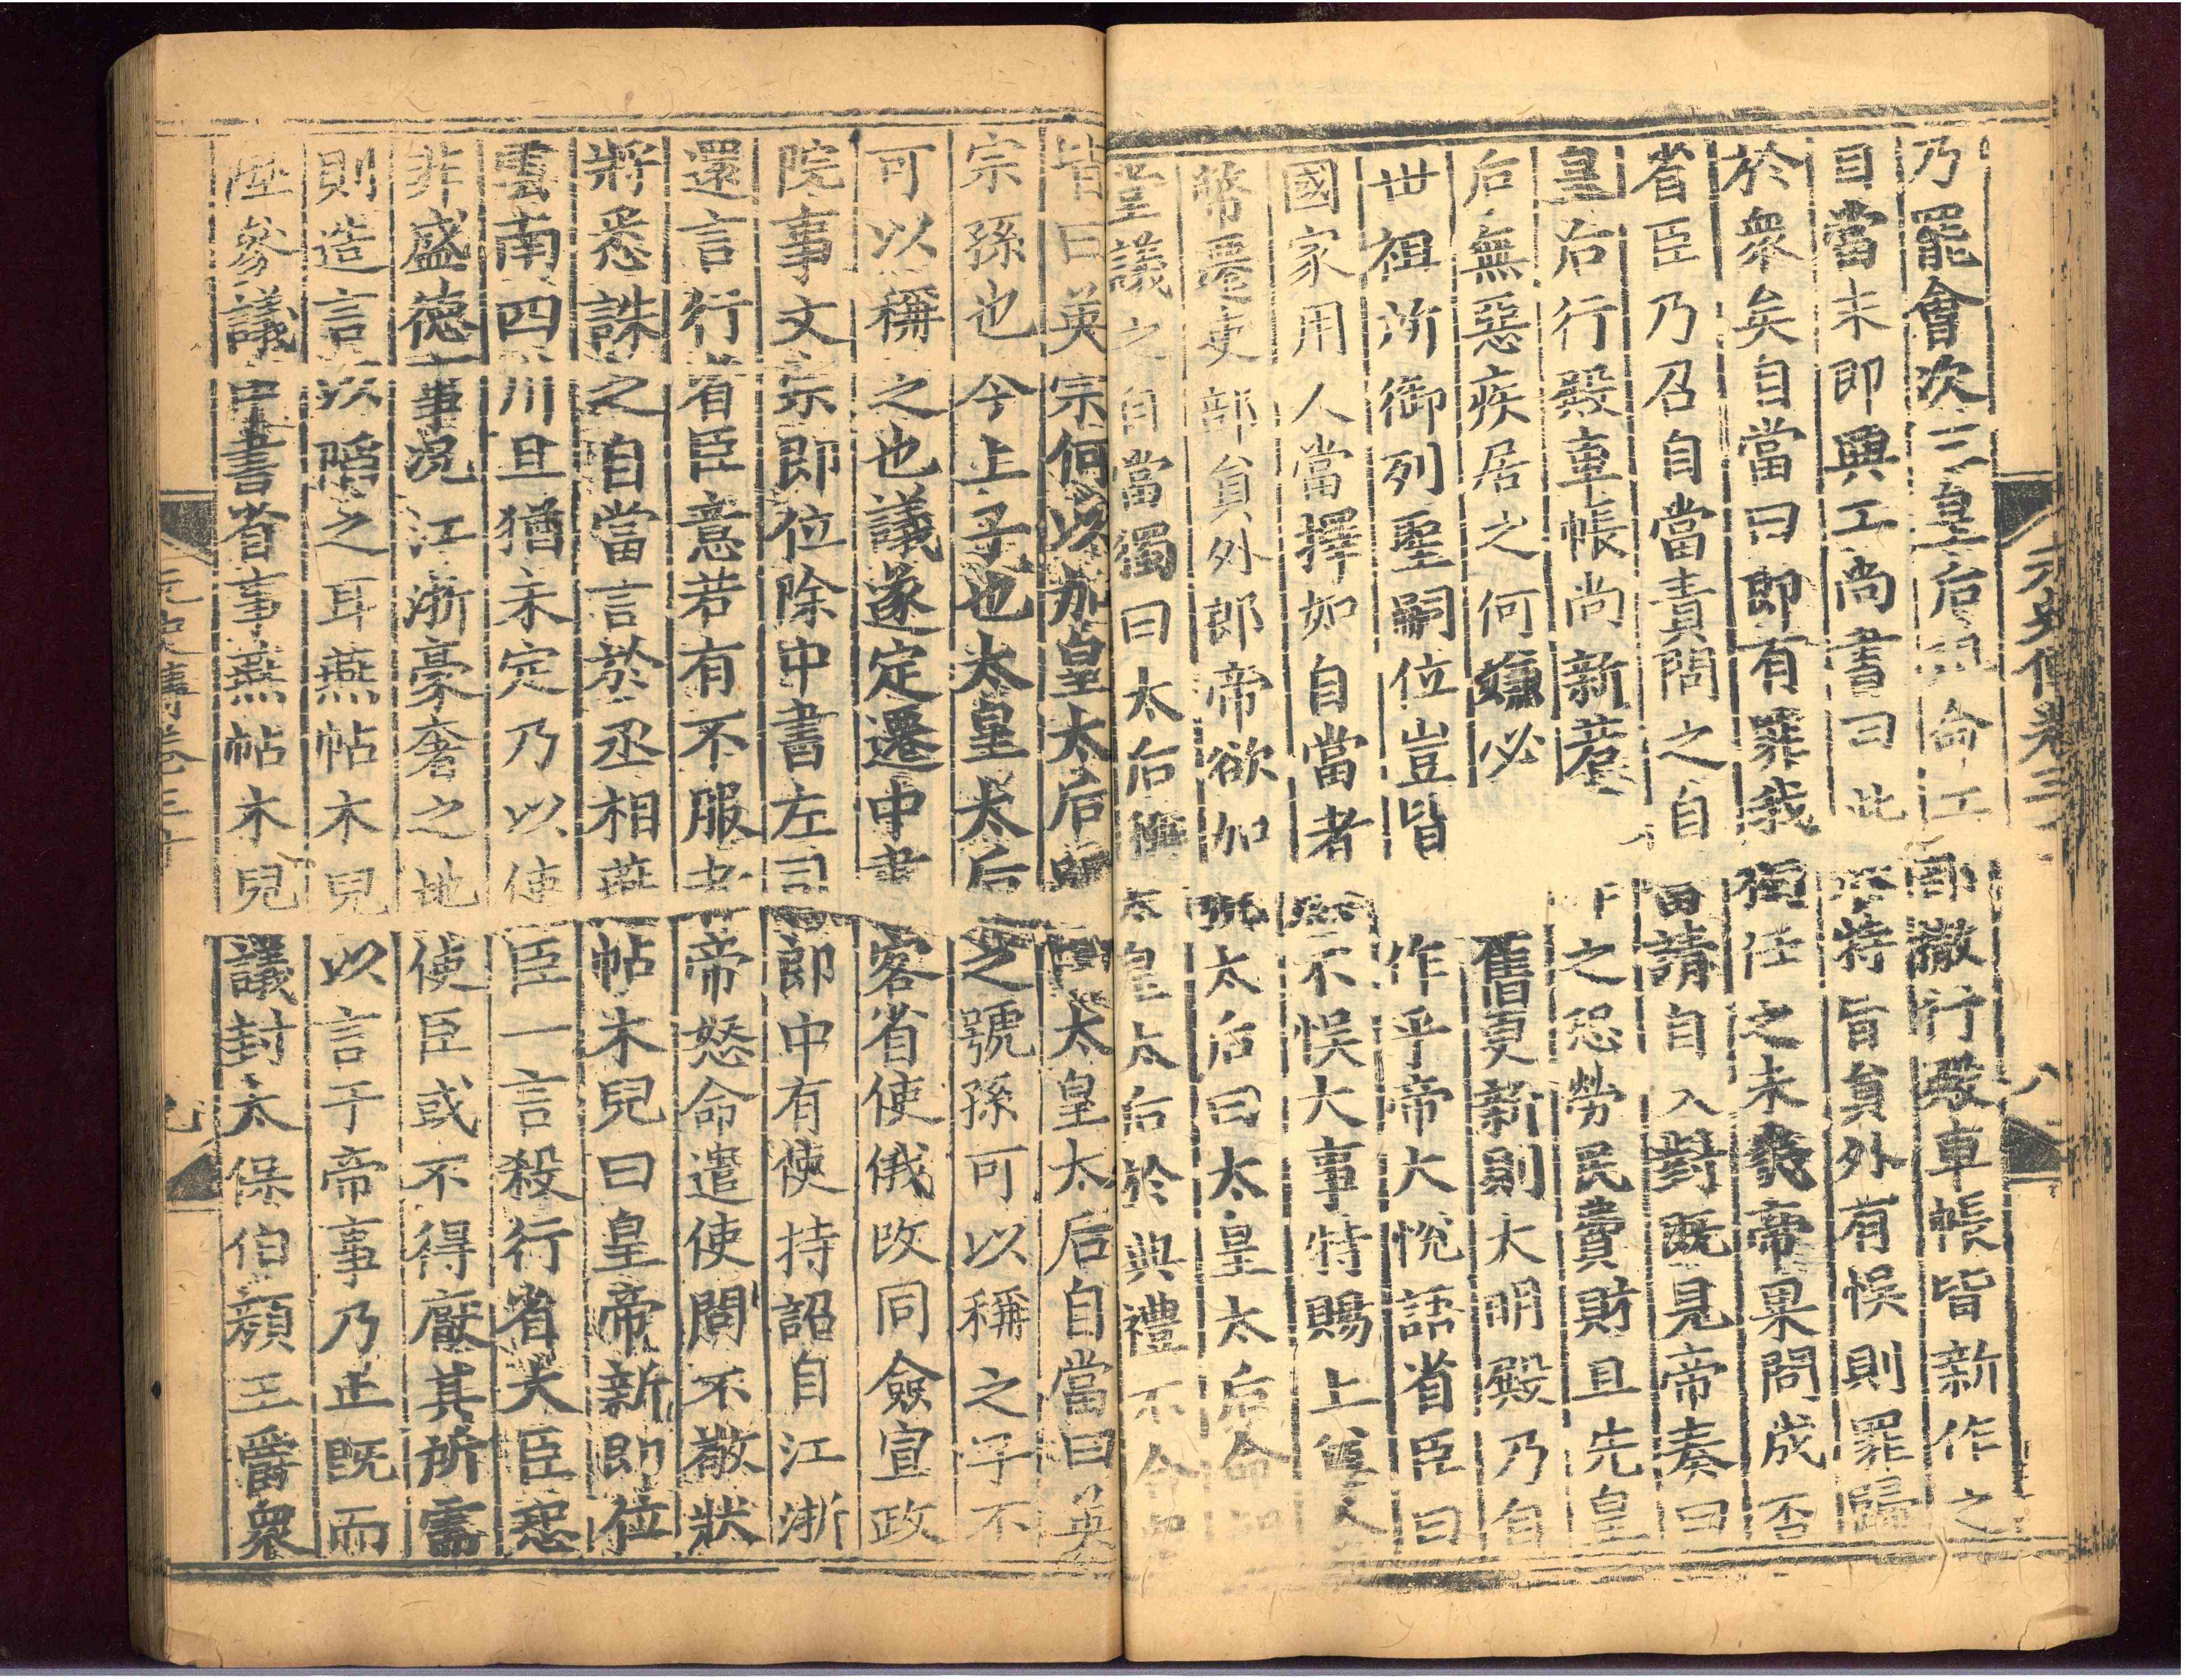 乃罷會次三皇后 命工 即撤行殿車帳皆新作之
自當未即興工尚書曰此 特旨員外有悞則罪歸
於衆矣自當曰即有罪我 任之未幾帝果問成否
省臣乃召自當責問之自 請自入對既見帝奏曰
皇后行殿車帳尚新 之恐勞民費財且先皇
后無惡疾居之何嫌必 舊更新則大明殿乃自
世祖所御列聖嗣位豈皆 作乎帝大悅語省臣曰
國家用人當擇如自當者 不悞大事特賜上
幣遷吏部員外郎帝欲加 太后曰太皇太后命
堂議之自當獨曰太后 太皇太后於典禮不合
皆曰英宗何以加皇太后 太皇太后自當曰英
宗孫也今上子也太皇太后之號孫可以稱之子不
可以稱之也議遂定遷中 客省使俄改同僉宣政
院事文宗即位除中書左司郎中有使持詔自江浙
還言行省臣意若有不服 帝怒命遣使問不敬狀
將悉誅之自當言於丞相燕帖木兒曰皇帝新即位
雲南四川且猶未定乃以使臣一言殺行省大臣恐
非盛德事況江浙豪奢之地使臣或不得厭其所需
則造言以陷之耳燕帖木兒以言于帝事乃止既而
陞參議中書省事燕帖木兒議封太保伯顏王爵衆
元史傳卷三十
八
元史傳卷三十
九